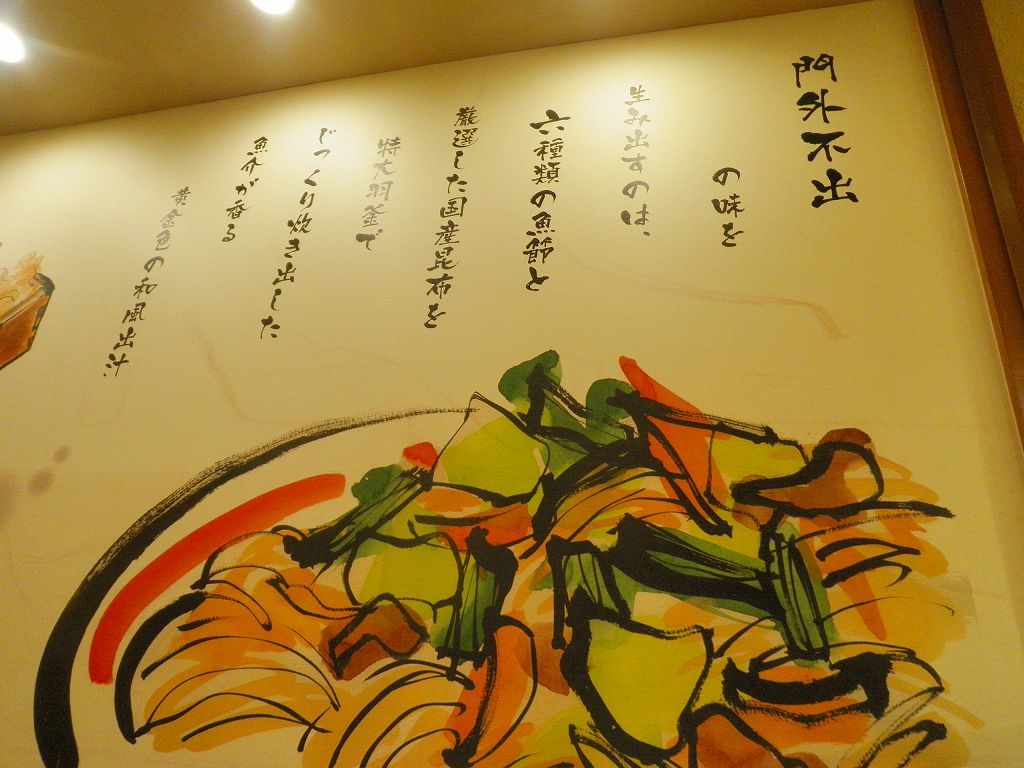 門外不出
の味を
生み出すのは、
六種類の魚節と
厳選した国産昆布を
特大羽釜で
じっくり炊き出した
魚介が香る
黄金色の和風出汁。